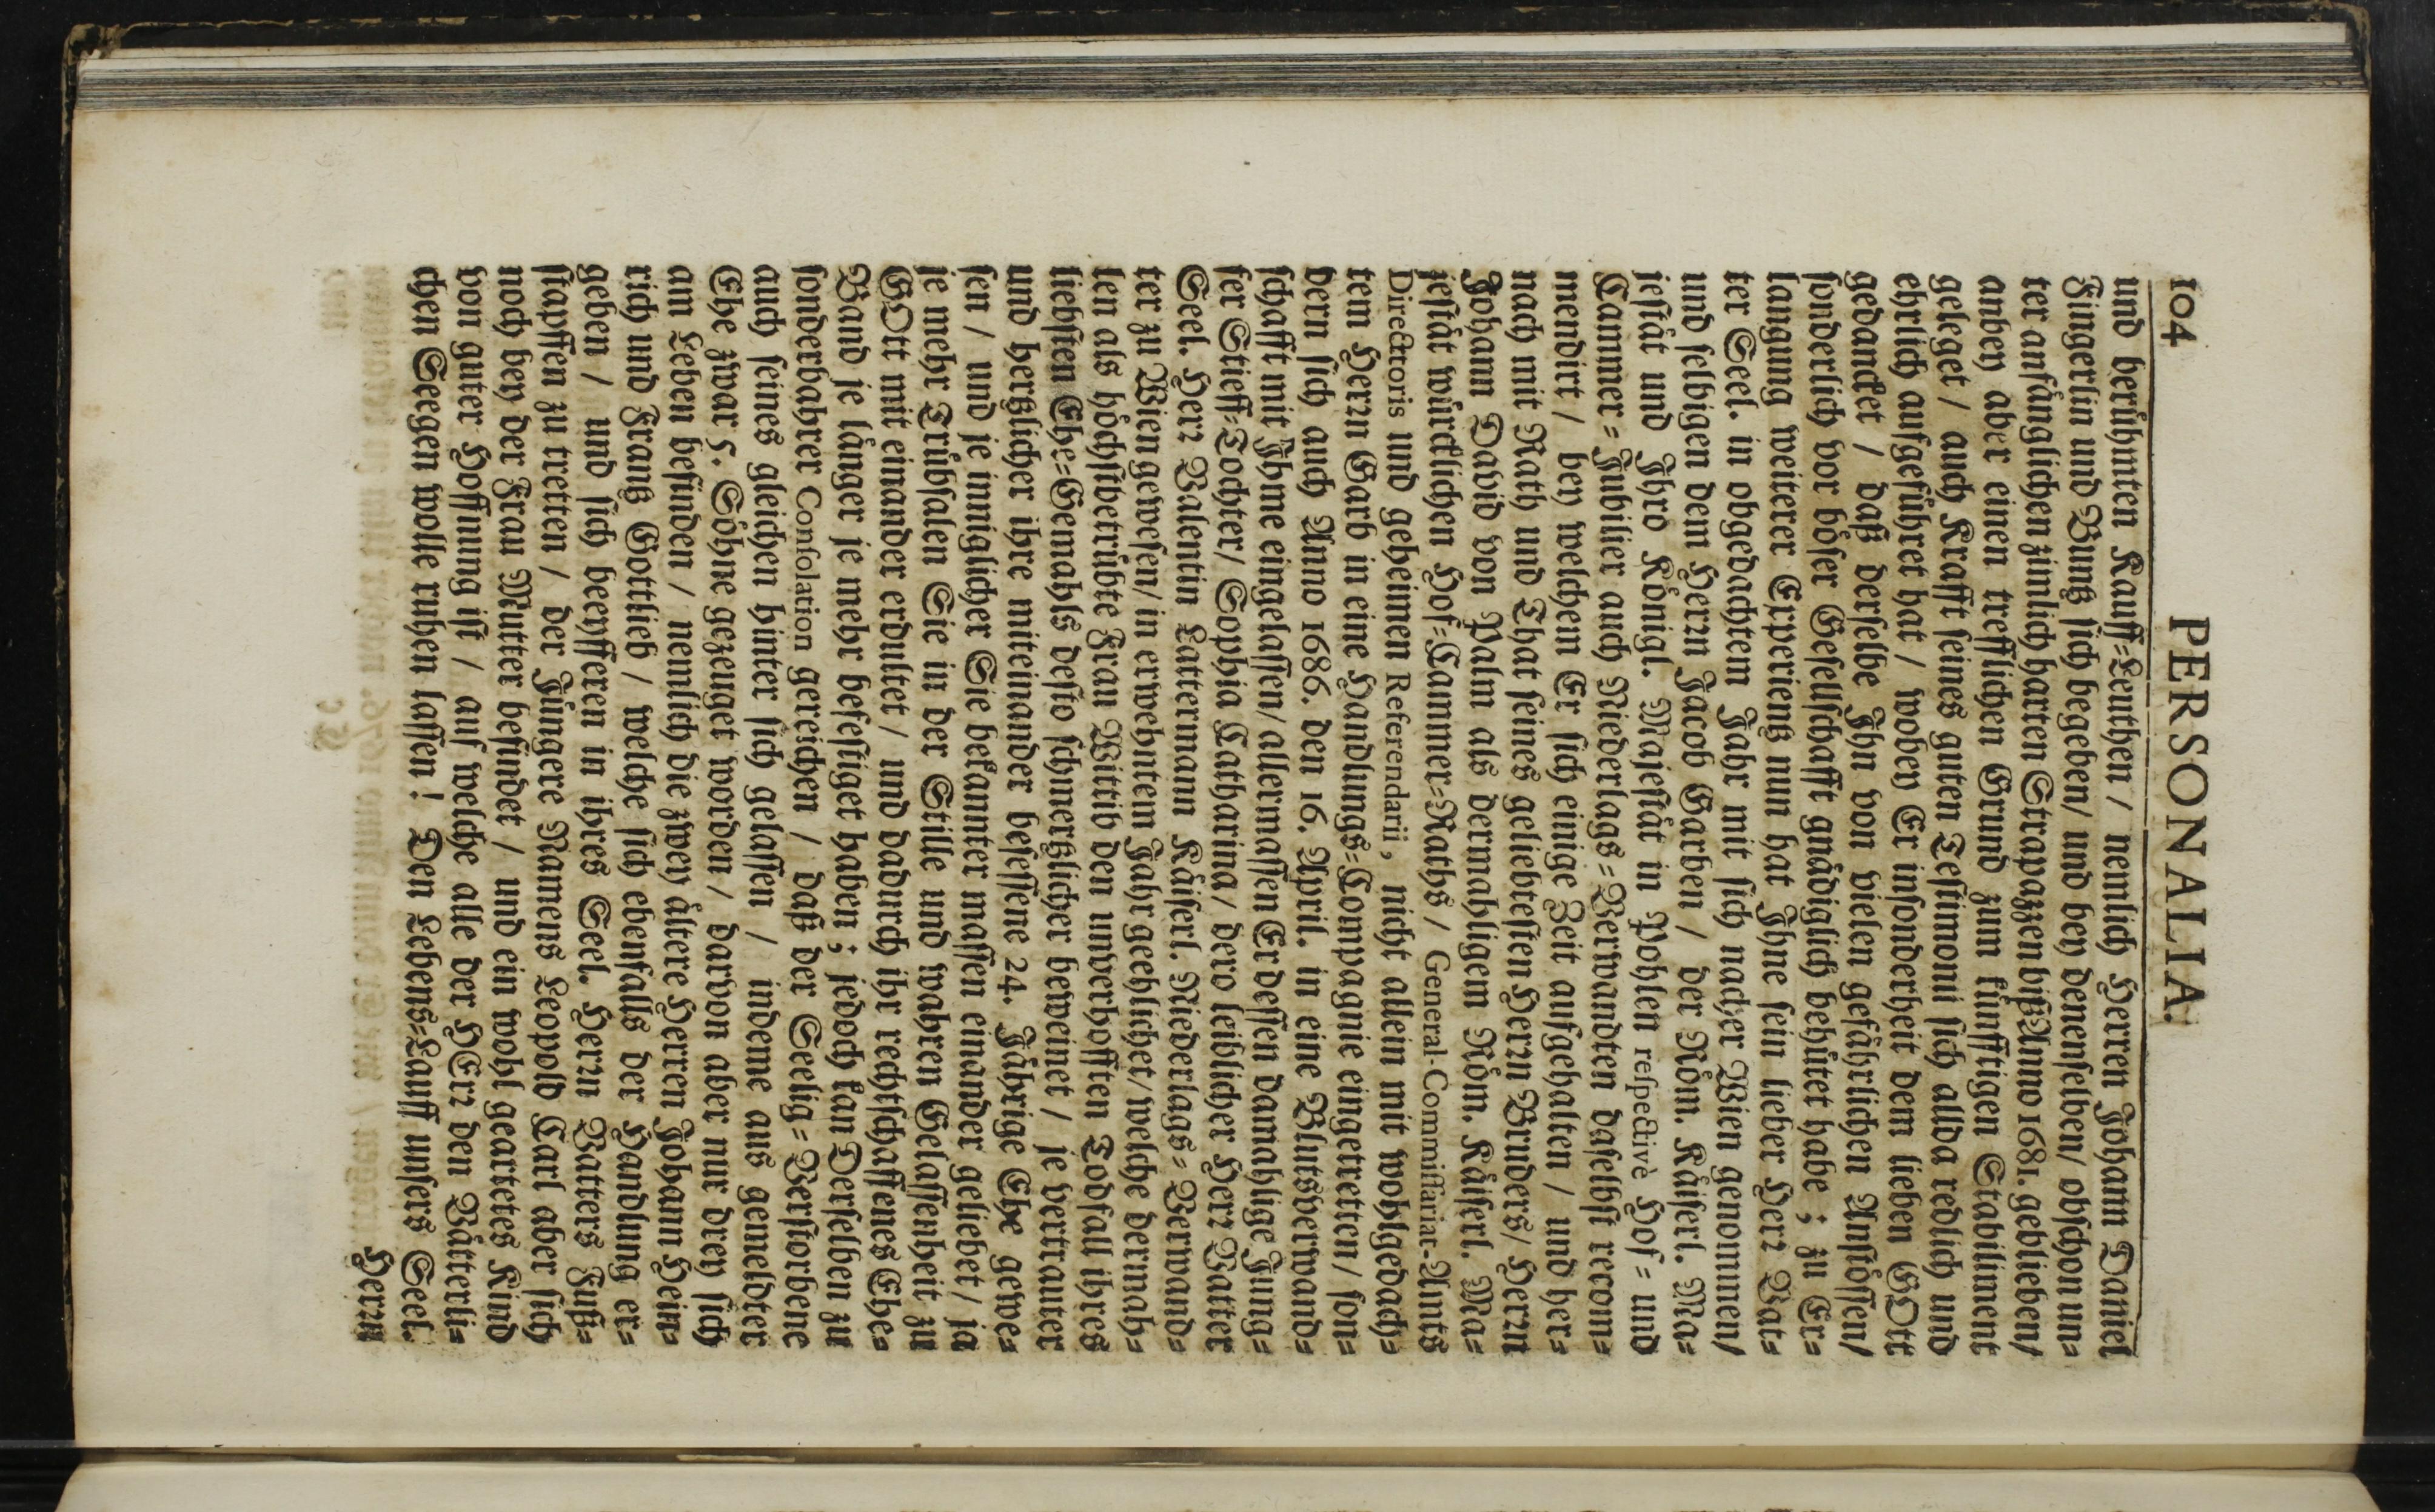 104 PERSONALIA.
und berühmten Kauff-Leuthen / nemlich Herren Johann Daniel
Fingerlin und Bung sich begeben/ und bey denenselben/ obschon un-
ter anfänglichen zimlich harten Strapazzen biß Anno 1681. geblieben/
anbey aber einen trefflichen Grund zum künfftigen Stabiliment
geleget / auch Krafft seines guten Testimonii sich allda redlich und
ehrlich aufgeführet hat / wobey Er insonderheit dem lieben GOtt
gedancket / daß derselbe Ihn von vielen gefährlichen Anstössen/
sonderlich vor böser Gesellschafft gnädiglich behütet habe ; zu Er-
langung weiterer Experientz nun hat Ihne sein lieber Herr Vat-
ter Seel. in obgedachtem Jahr mit sich nacher Wien genommen/
und selbigen dem Herrn Jacob Garben / der Röm. Käiserl. Ma-
jestät und Ihro Königl. Majestät in Pohlen respectivè Hof- und
Cammer-Jubilier auch Niederlags-Verwandten daselbst recom-
mendirt / bey welchem Er sich einige Zeit aufgehalten / und her-
nach mit Rath und That seines geliebtesten Herrn Bruders/ Herrn
Johann David von Palm als dermahligem Röm. Käiserl. Ma-
jestät würcklichen Hof-Cammer-Raths / General-Commissariat-Amts
Directoris und geheimen Referendarii, nicht allein mit wohlgedach-
tem Herrn Garb in eine Handlungs-Compagnie eingetretten/ son-
dern sich auch Anno 1686. den 16. April. in eine Blutsverwand-
schafft mit Ihme eingelassen/ allermassen Er dessen damahlige Jung-
fer Stieff-Tochter/ Sophia Catharina/ dero leiblicher Herr Vatter
Seel. Herr Valentin Lattermann Käiserl. Niederlags-Verwand-
ter zu Wien gewesen/ in erwehntem Jahr geehlichet/ welche dermah-
len als höchstbetrübte Frau Wittib den unverhofften Todfall ihres
liebsten Ehe-Gemahls desto schmertzlicher beweinet / je vertrauter
und hertzlicher ihre miteinander besessene 24. Jährige Ehe gewe-
sen / und je inniglicher Sie bekannter massen einander geliebet / ja
je mehr Trübsalen Sie in der Stille und wahren Gelassenheit zu
GOtt mit einander erdultet / und dadurch ihr rechtschaffenes Ehe-
Band je länger je mehr befestiget haben ; jedoch kan Derselben zu
sonderbahrer Consolation gereichen / daß der Seelig-Verstorbene
auch seines gleichen hinter sich gelassen / indeme aus gemeldter
Ehe zwar 5. Söhne gezeuget worden / darvon aber nur drey sich
am Leben befinden / nemlich die zwey ältere Herren Johann Hein-
rich und Frantz Gottlieb / welche sich ebenfalls der Handlung er-
geben / und sich beeyfferen in ihres Seel. Herrn Vatters Fuß-
stapffen zu tretten / der Jüngere Namens Leopold Carl aber sich
noch bey der Frau Mutter befindet / und ein wohl geartetes Kind
von guter Hoffnung ist / auf welche alle der HErr den Vätterli-
chen Seegen wolle ruhen lassen ! Den Lebens-Lauff unsers Seel.
Herrn